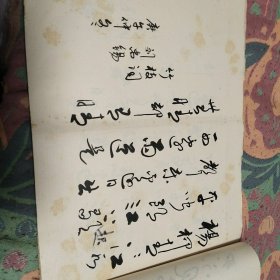 楊柳青青江水
平聞郎江上唱歌
聲東邊日出
西邊雨道是
無晴卻有晴
竹枝詞
劉禹錫